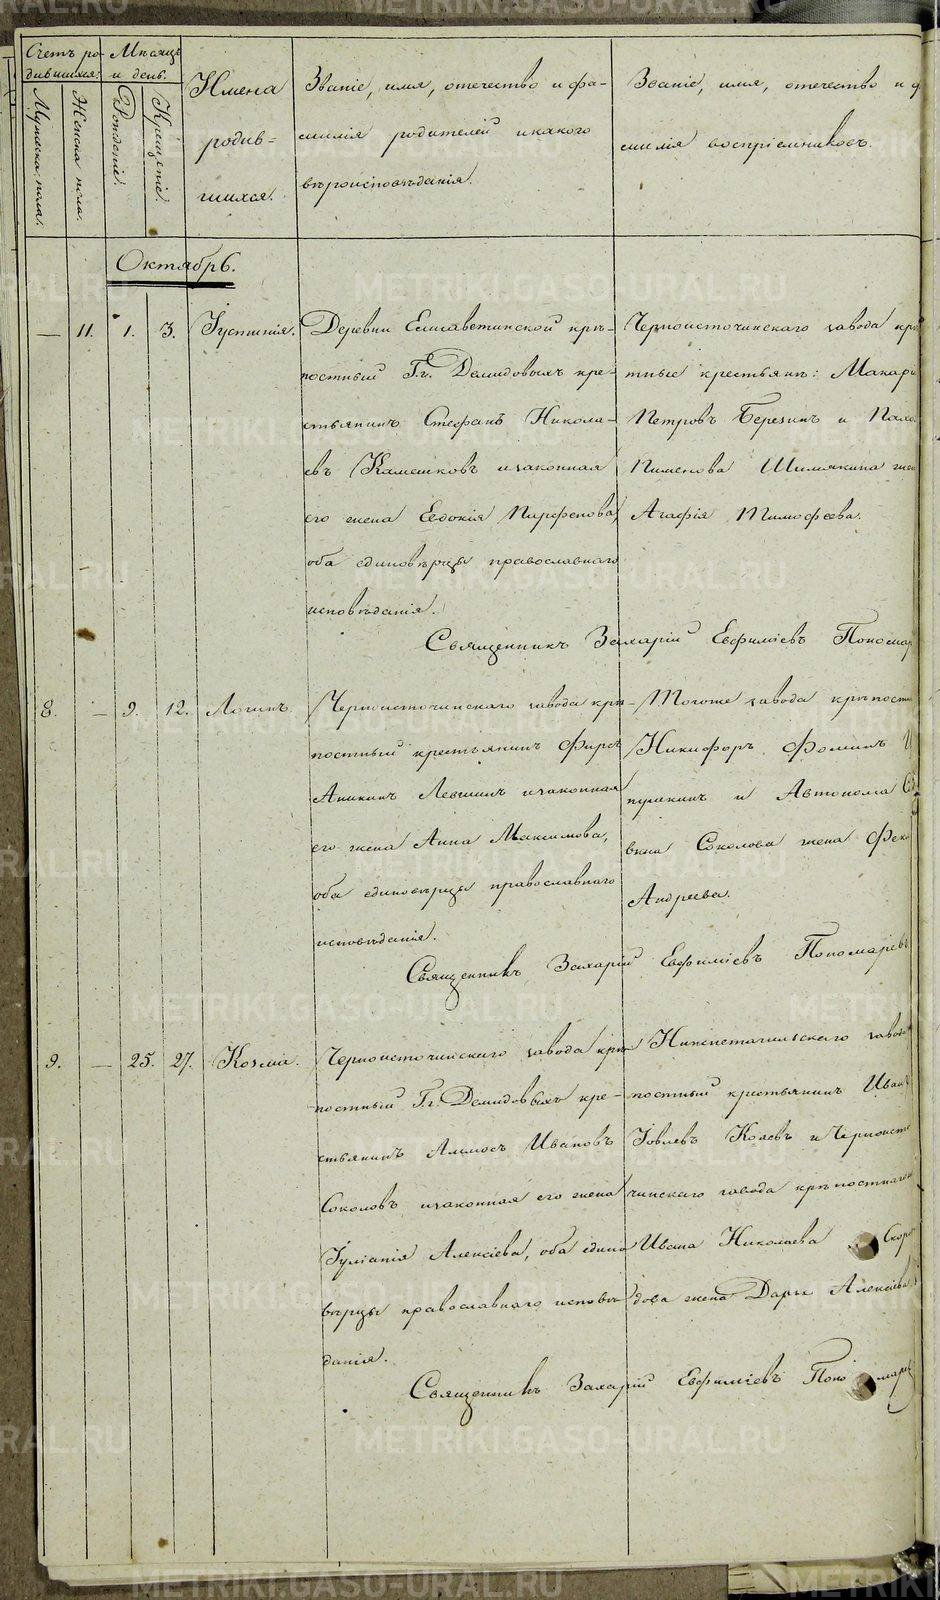 Счетъ ро-
дившихся.
Мѣсяцъ
и день.
Мужеска пола.
Женска пола.
Рожденіе.
Крещеніе.
Имена
родив-
шихся.
Званіе, имя, отечество и фа-
милія родителей и какого
вѣроисповѣданія.
Званіе, имя, отечество и ф
милія воспріемниковъ.
Октябрь.
— 11. 1. 3. Іустинія.
Деревни Елисаветинской крѣ-
постный Гг. Демидовыхъ кре-
стьянинъ Стефанъ Никола-
евъ Камешковъ и законная
его жена Евдокія Парфенова,
оба единовѣрцы православнаго
исповѣданія.
Черноисточинскаго завода крѣ
тные крестьяне: Макар
Петровъ Березинъ и
Пименова Шимякина жен
Агафія Тимофеева.
Священникъ Захарій Евфиміевъ Пономар
8. — 9. 12. Логинъ.
Черноисточинскаго завода крѣ-
постный крестьянинъ Фирсъ
Аникинъ Левшинъ и законная
его жена Анна Максимова,
оба единовѣрцы православнаго
исповѣданія.
Тогоже завода крѣпостн
Никифоръ Фоминъ
и Автонома
Соколова жена Фек
Андреева.
Священникъ Захарій Евфиміевъ Пономаревъ
9. — 25. 27. Козма.
Черноисточинскаго завода крѣ
постный Гг. Демидовыхъ кре-
стьянинъ Амосъ Ивановъ
Соколовъ и законная его жена
Іуліанія Алексіева, оба едино
вѣрцы православнаго исповѣ
данія.
Нижнетагильскаго завод
постный крестьянинъ Иван
Іовлевъ Коаевъ и Черноист
чинскаго завода крѣпостнаго
Ивана Николаева Скор
дова жена Дарья Алексіева
Священникъ Захарій Евфиміевъ Пономарев
METRIKI.GASO-URAL.RU